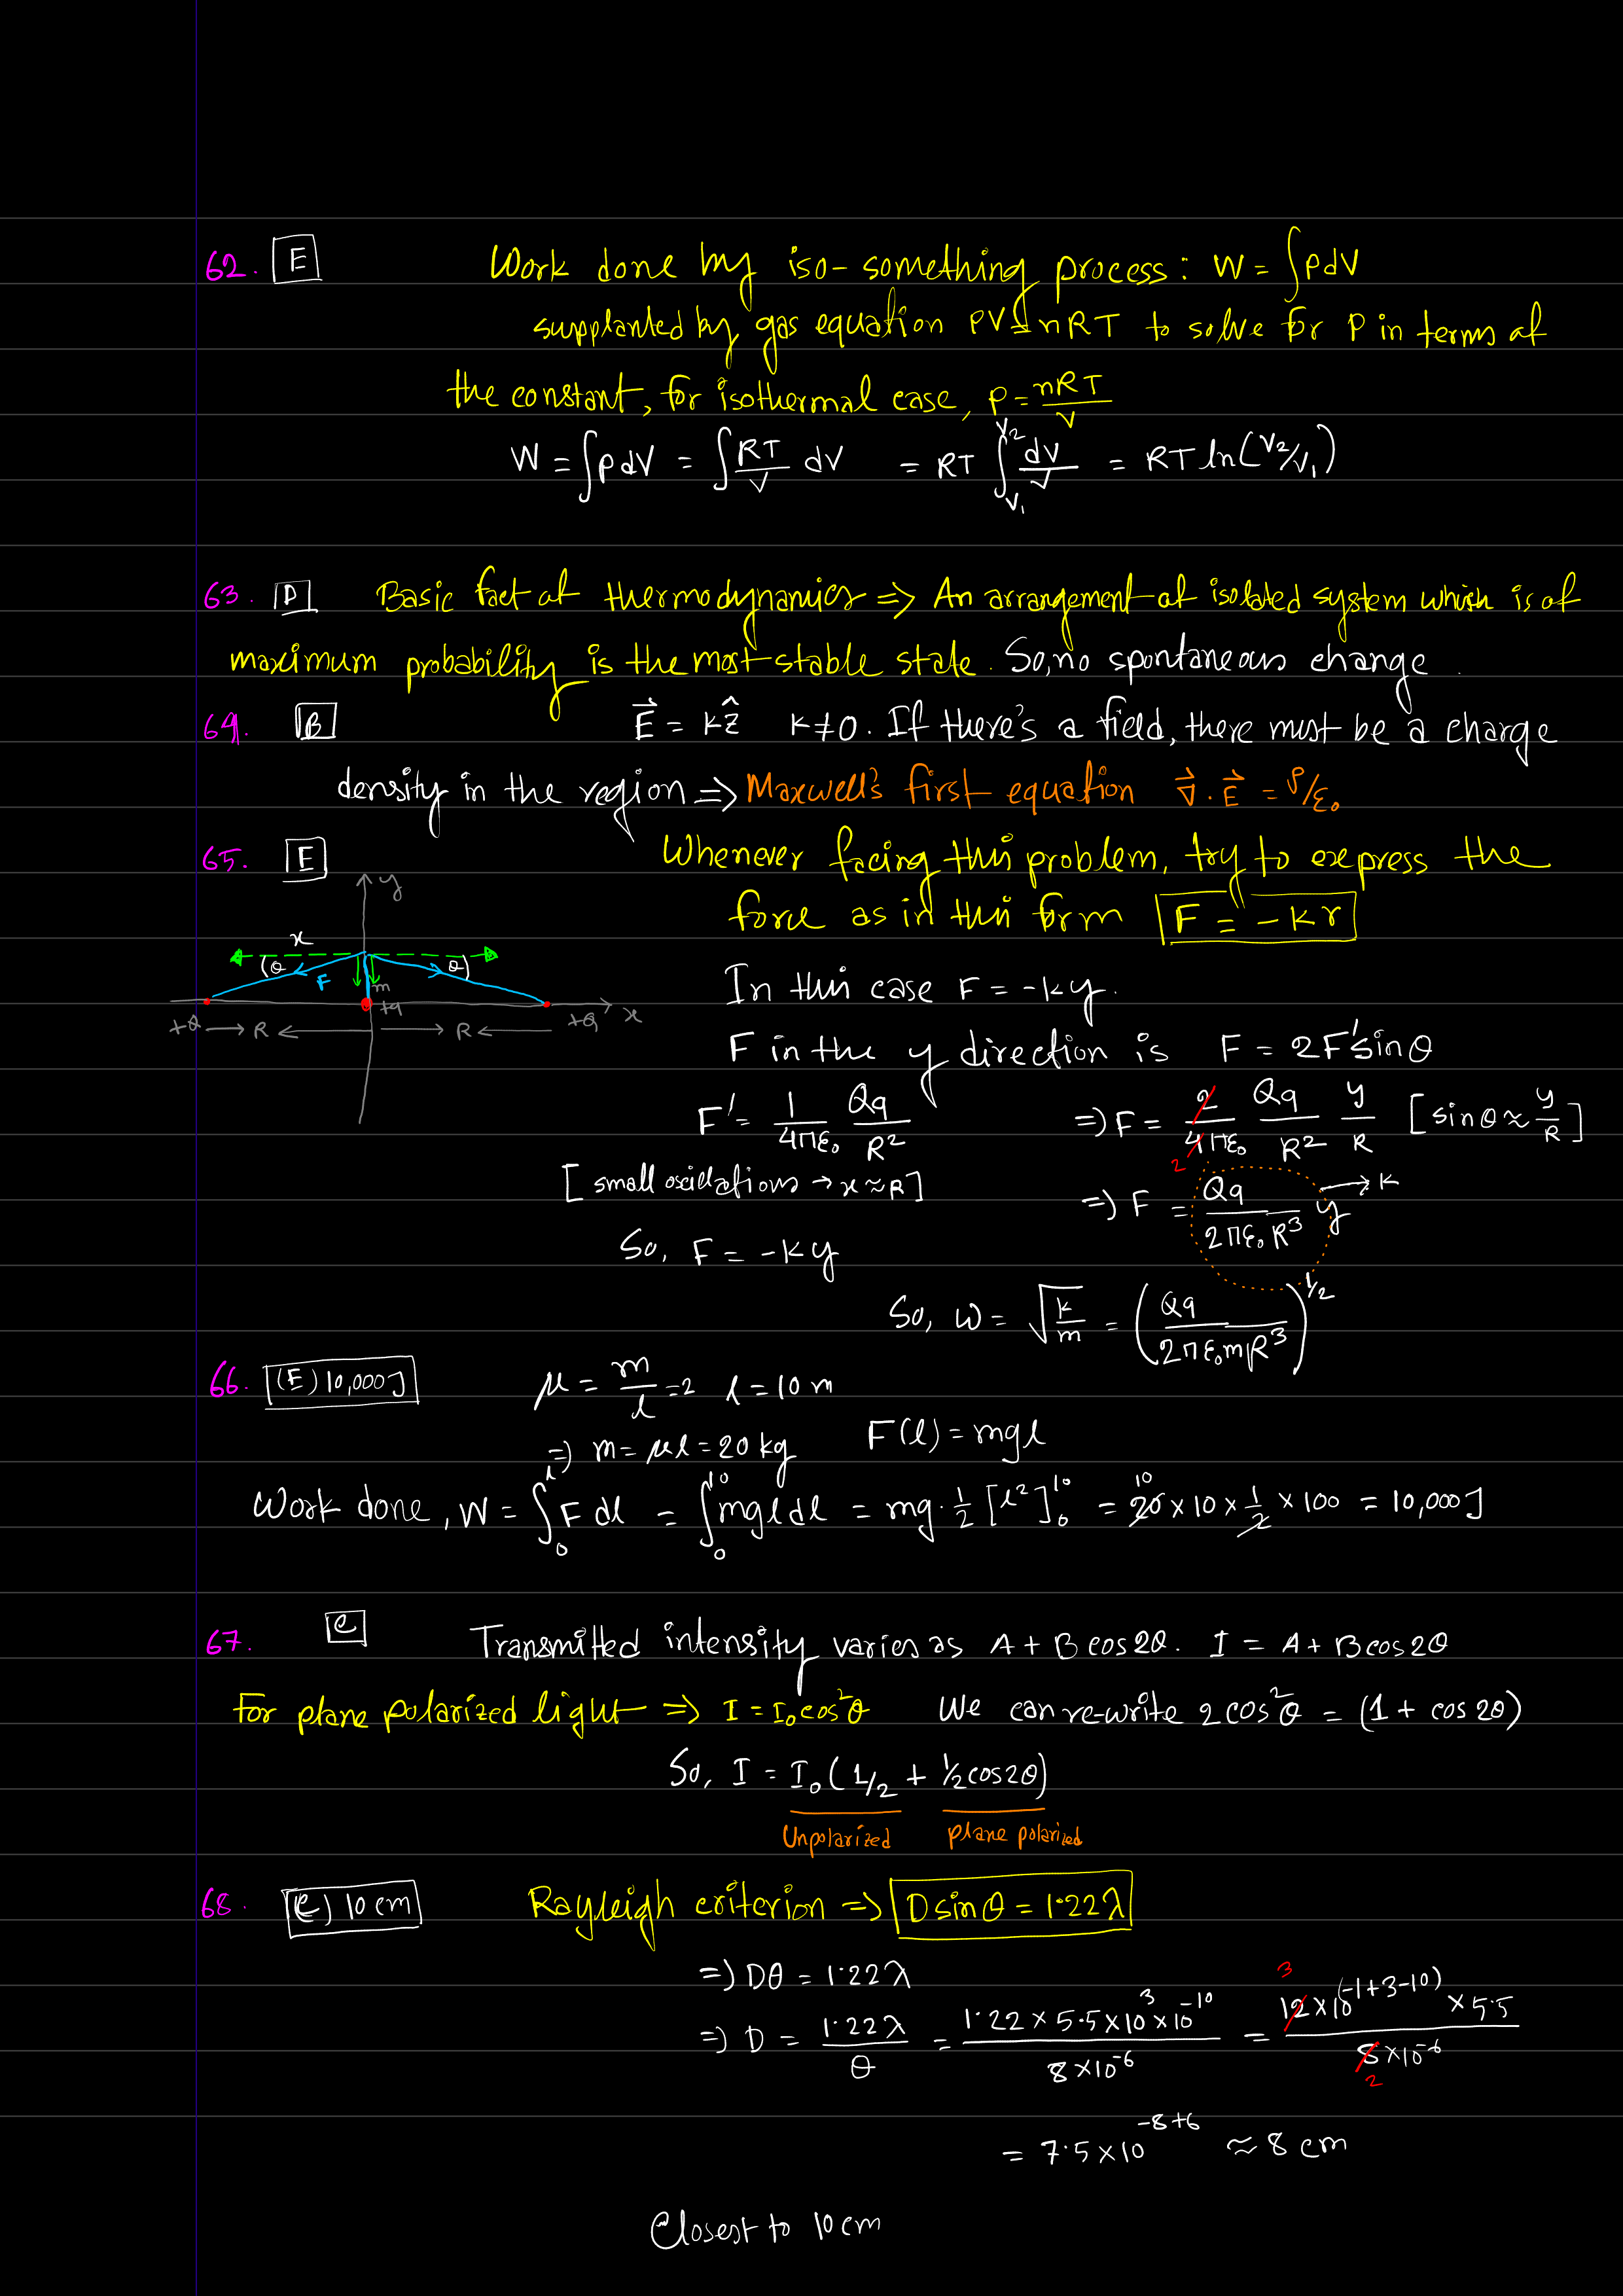 62. E Work done by iso-something process: W = ∫PdV
supplanted by gas equation PV = nRT to solve for P in terms of
the constant, for isothermal case, P = nRT/V
W = ∫PdV = ∫RT/V dV = RT ∫_{V₁}^{V₂} dV/V = RT ln(V₂/V₁)
63. D Basic fact of thermodynamics => An arrangement of isolated system which is of
maximum probability is the most stable state. So, no spontaneous change.
64. B E⃗ = kẑ k≠0. If there's a field, there must be a charge
density in the region => Maxwell's first equation ∇⃗.E⃗ = ρ/ε₀
65. E Whenever facing this problem, try to express the
force as in this form F = -kr
y
x
(θ θ)
F
m
+q
+Q → R ← → R ← +Q x
In this case F = -ky.
F in the y direction is F = 2F'sinθ
F' = 1/4πε₀ Qq/R² => F = 2/4πε₀ Qq/R² y/R [sinθ ≈ y/R]
2
[small oscillations → x ≈ R] => F = Qq/2πε₀R³ y → k
So, F = -ky
So, ω = √(k/m) = (Qq/2πε₀mR³)^1/2
66. (E) 10,000J μ = m/l = 2 l = 10 m
=> m = μl = 20 kg F(l) = mgl
Work done, W = ∫₀^l F dl = ∫₀^10 mgl dl = mg·1/2 [l²]₀^10 = 20 10 × 10 × 1/2 × 100 = 10,000J
67. C Transmitted intensity varies as A + B cos2θ. I = A + B cos2θ
For plane polarized light => I = I₀cos²θ We can re-write 2cos²θ = (1 + cos 2θ)
So, I = I₀(1/2 + 1/2cos2θ)
Unpolarized plane polarized
68. (C) 10 cm Rayleigh criterion => Dsinθ = 1.22λ
=> Dθ = 1.22λ
=> D = 1.22λ/θ = 1.22 × 5.5 × 10³ × 10⁻¹⁰ / 8×10⁻⁶ = 12 3 × 10^(-1+3-10) × 5.5 / 8 2 × 10⁻⁶
= 7.5×10^-8+6 ≈ 8 cm
Closest to 10 cm